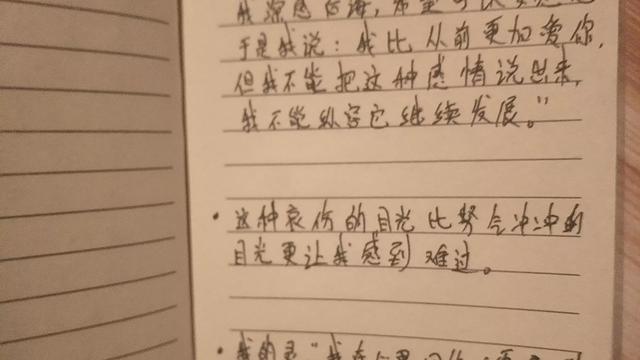 我深感后悔，希望可以
于是我说：我比从前更加爱你，
但我不能把这种感情说出来，
我不能纵容它继续发展。”
·这种哀伤的目光比努气冲冲的
目光更让我感到难过。
·我的